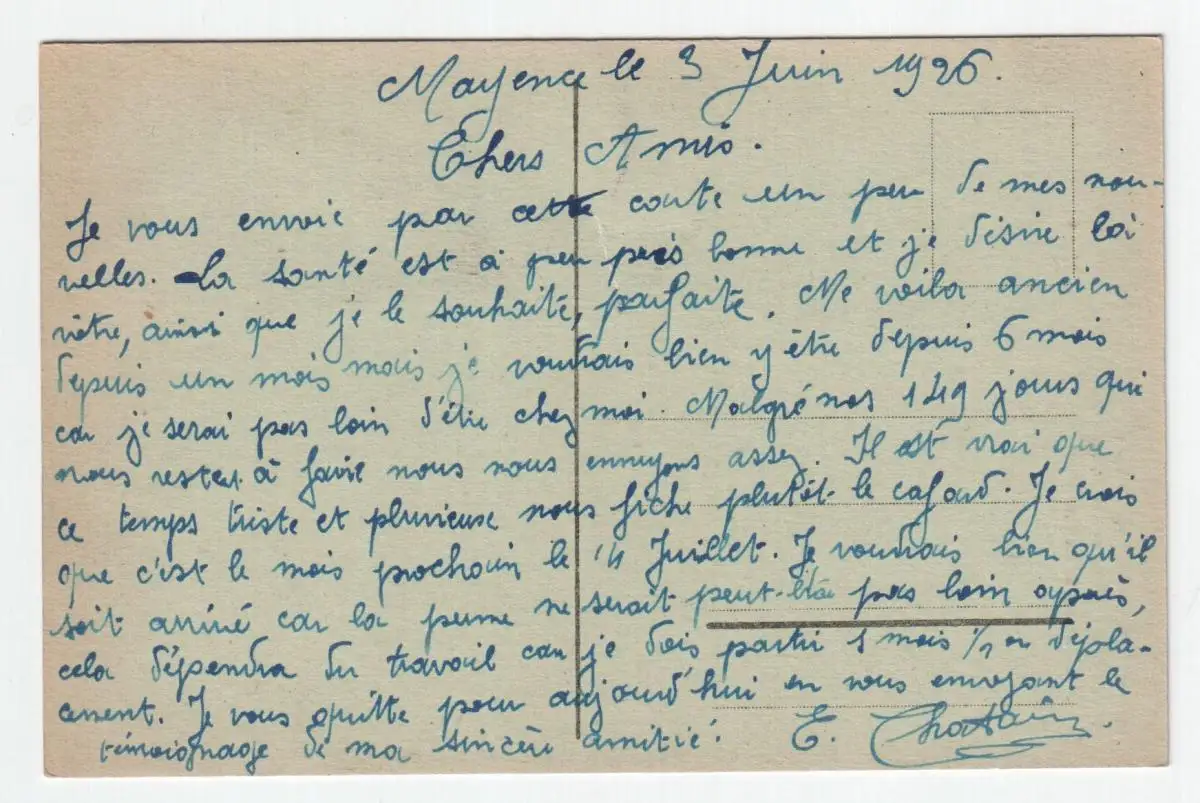 Mayence le 3 Juin 1926.
Chers Amis.
Je vous envoie par cette carte un peu de mes nou-
velles. La santé est à peu près bonne et je désire la
vôtre, ainsi que je le souhaite, parfaite. Me voila ancien
depuis un mois mais je voudrais bien y être depuis 6 mois
car je serai pas loin d'être chez moi. Malgré nos 149 jours qui
nous restent à faire nous nous ennuyons assez. Il est vrai que
ce temps triste et pluvieuse nous fiche plutôt le cafard. Je crois
que c'est le mois prochain le 14 Juillet. Je voudrais bien qu'il
soit arrivé car la perme ne serait peut-être pas loin après,
cela dépendra du travail car je dois partir 1 mois 1/2 en dépla-
cement. Je vous quitte pour aujourd'hui en vous envoyant le
témoignage de ma sincère amitié.
E. Chatain.